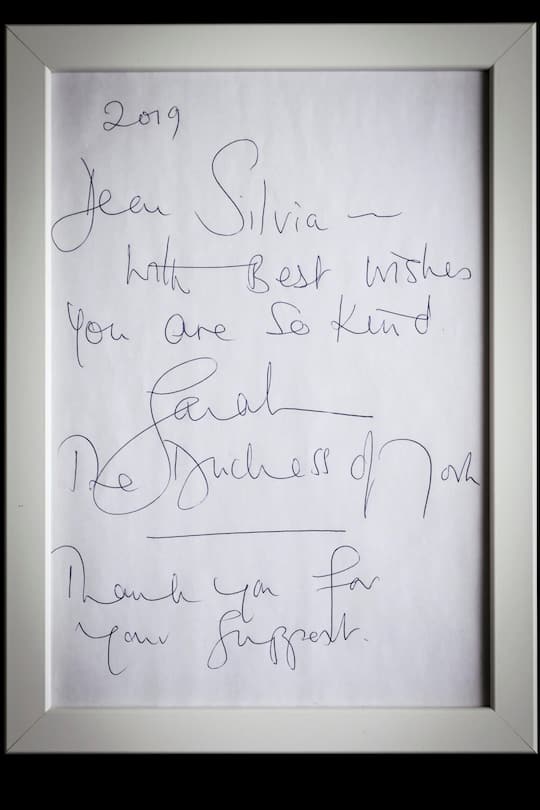 2019
Dear Silvia —
With Best Wishes
You are So Kind.
Sarah
The Duchess of York
Thank you for
your Support.